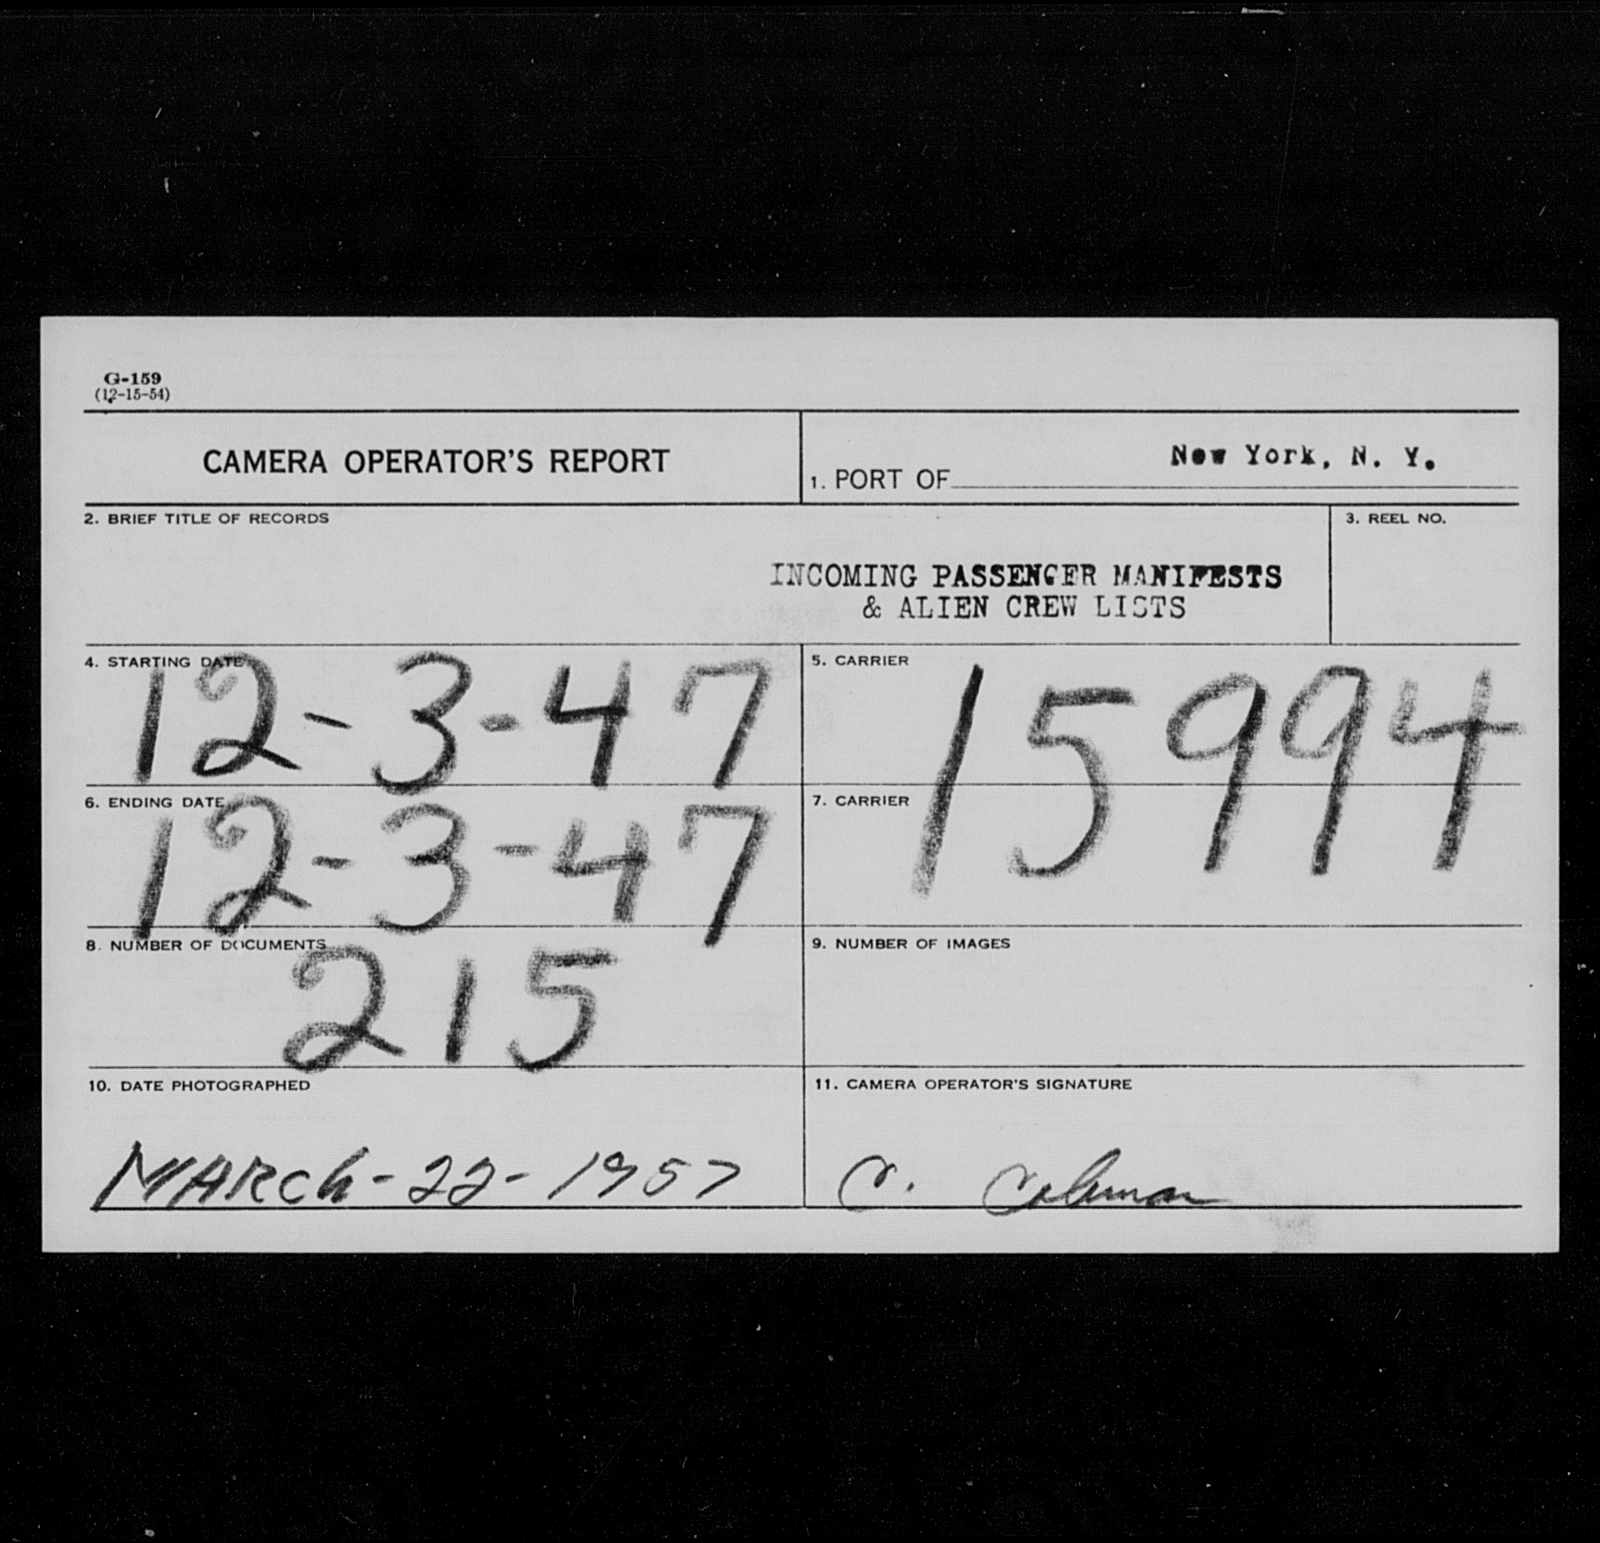 G-159
(12-15-54)
CAMERA OPERATOR'S REPORT
1. PORT OF New York, N. Y.
2. BRIEF TITLE OF RECORDS
3. REEL NO.
INCOMING PASSENGER MANIFESTS
& ALIEN CREW LISTS
4. STARTING DATE
12-3-47
5. CARRIER
15994
6. ENDING DATE
12-3-47
7. CARRIER
8. NUMBER OF DOCUMENTS
215
9. NUMBER OF IMAGES
10. DATE PHOTOGRAPHED
MARCh-22-1957
11. CAMERA OPERATOR'S SIGNATURE
C. Coleman